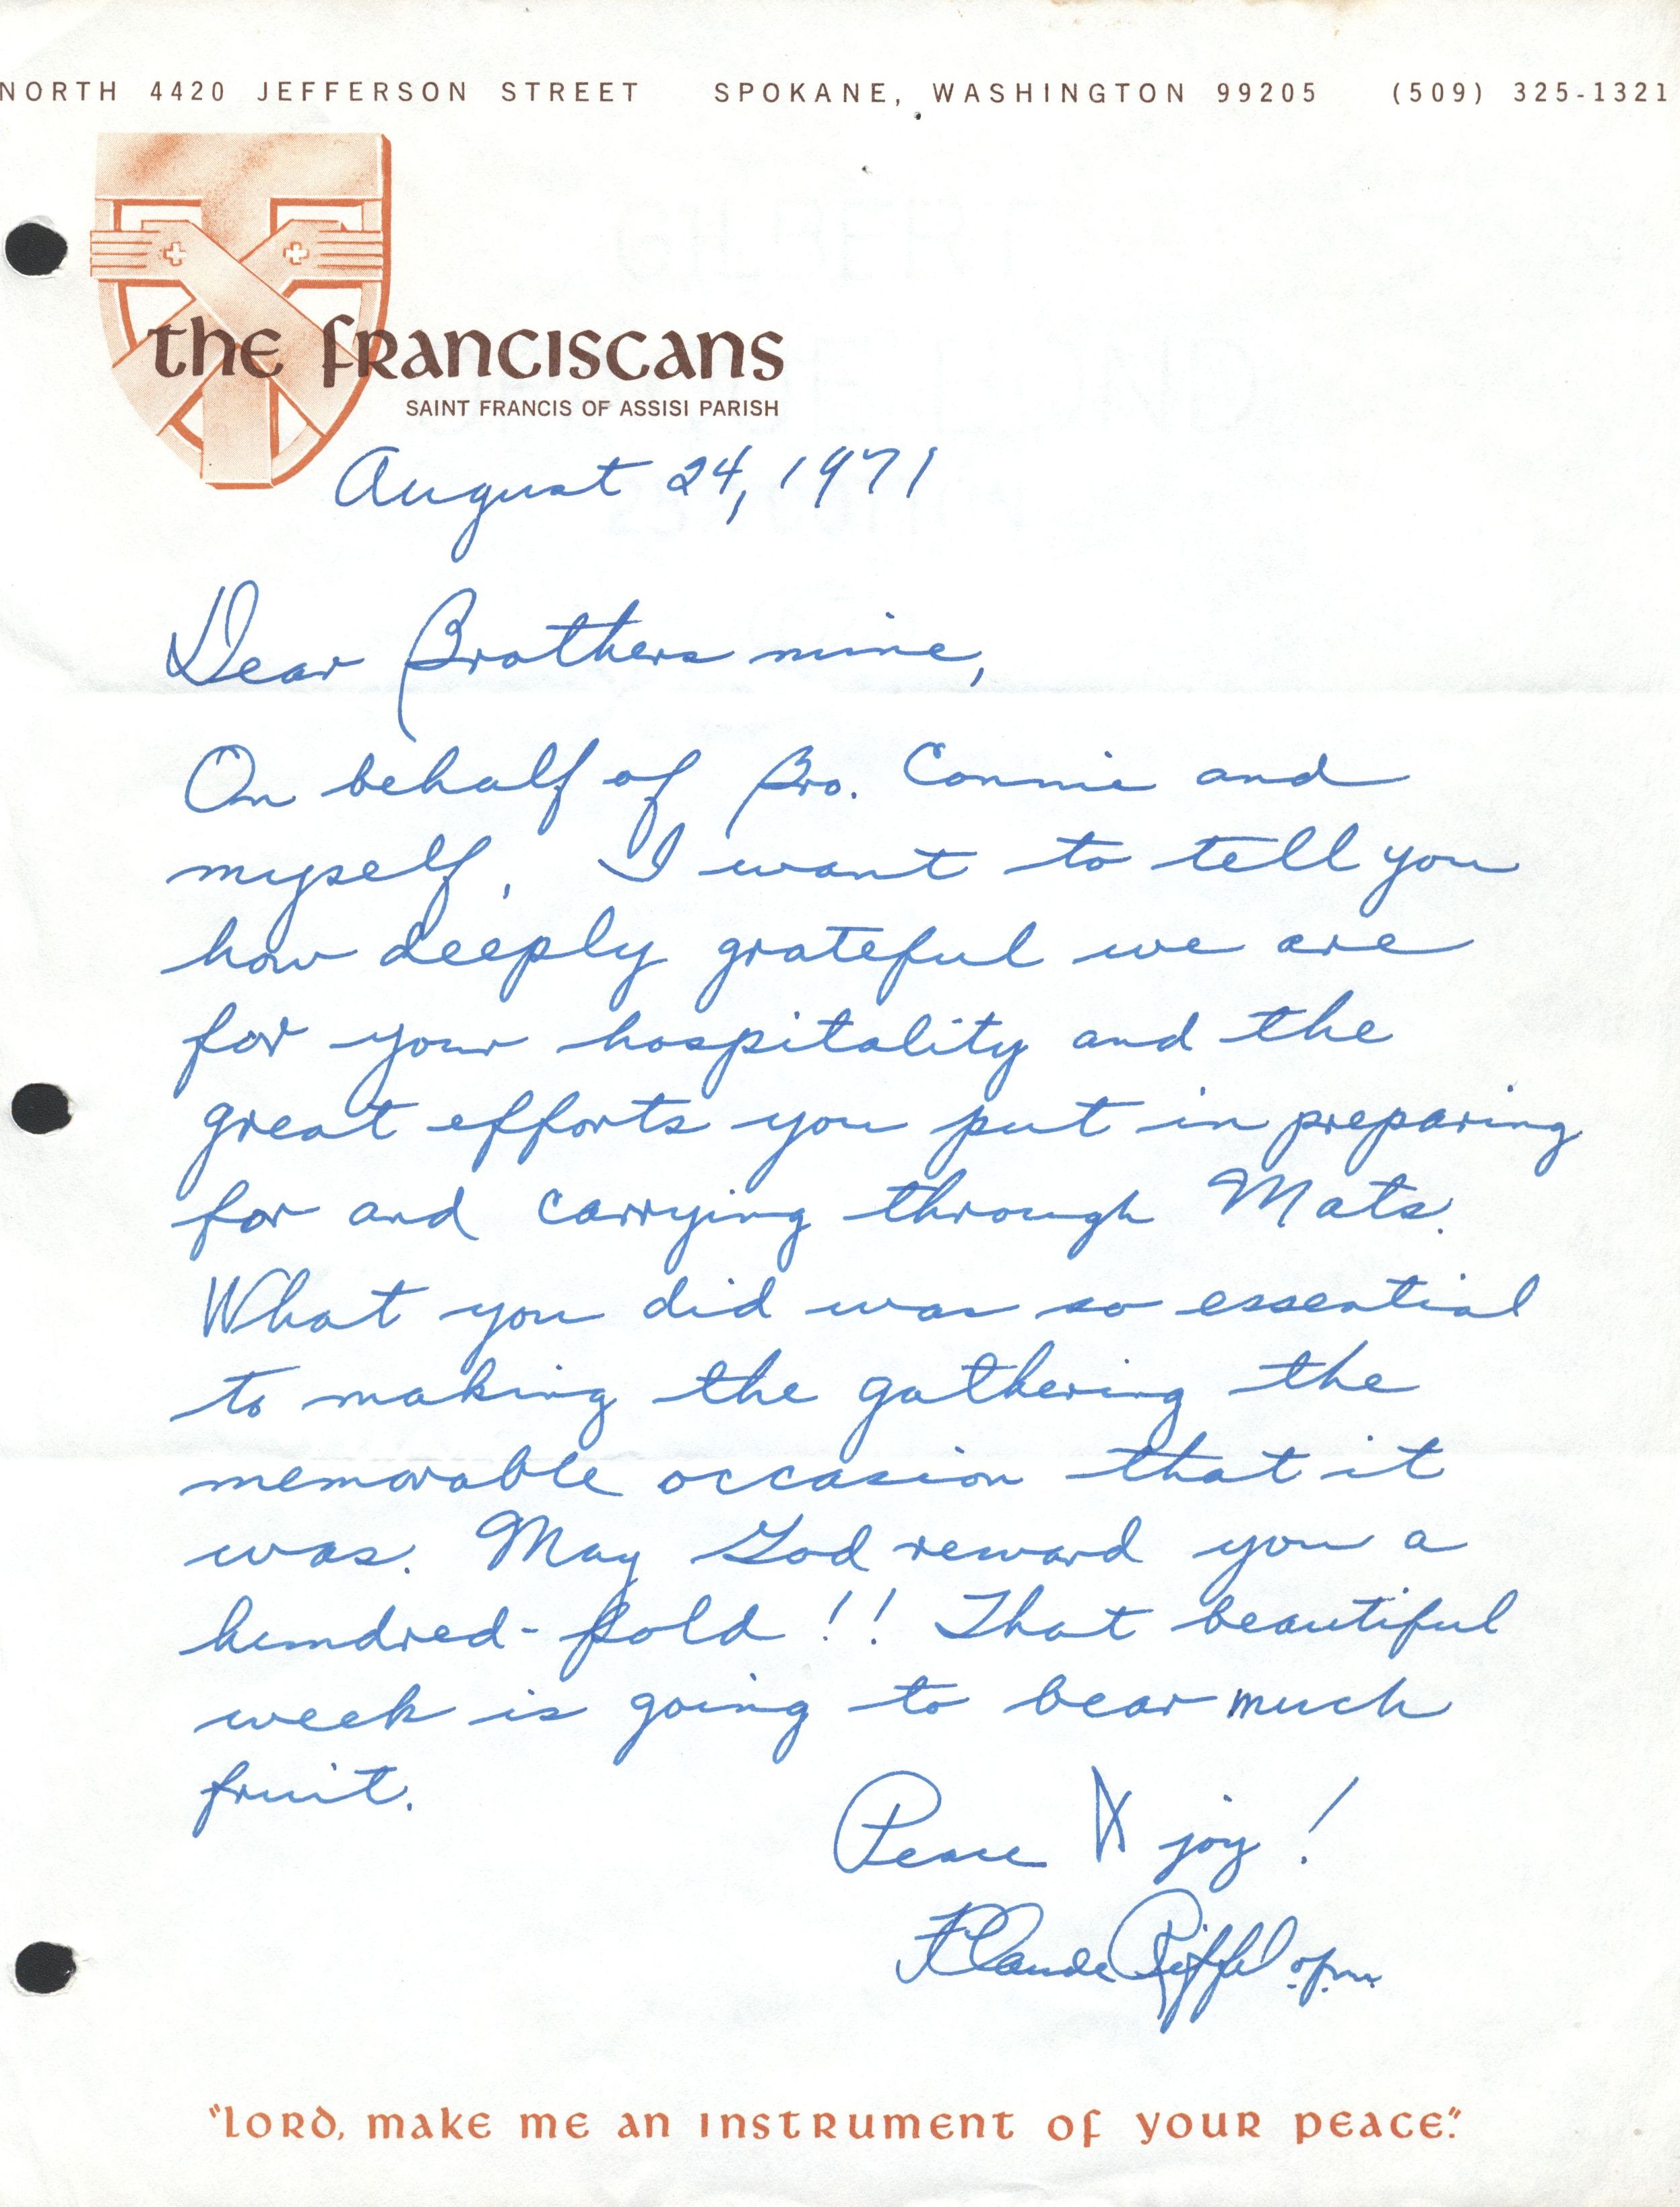 NORTH 4420 JEFFERSON STREET SPOKANE, WASHINGTON 99205 (509) 325-1321
the franciscans
SAINT FRANCIS OF ASSISI PARISH
August 24, 1971
Dear Brothers mine,
On behalf of Bro. Connie and
myself, I want to tell you
how deeply grateful we are
for your hospitality and the
great efforts you put in preparing
for and carrying through Mats.
What you did was so essential
to making the gathering the
memorable occasion that it
was. May God reward you a
hundred-fold!! That beautiful
week is going to bear much
fruit.
Peace & joy!
Claude Riffel ofm.
"LORD, make me an instrument of your peace."